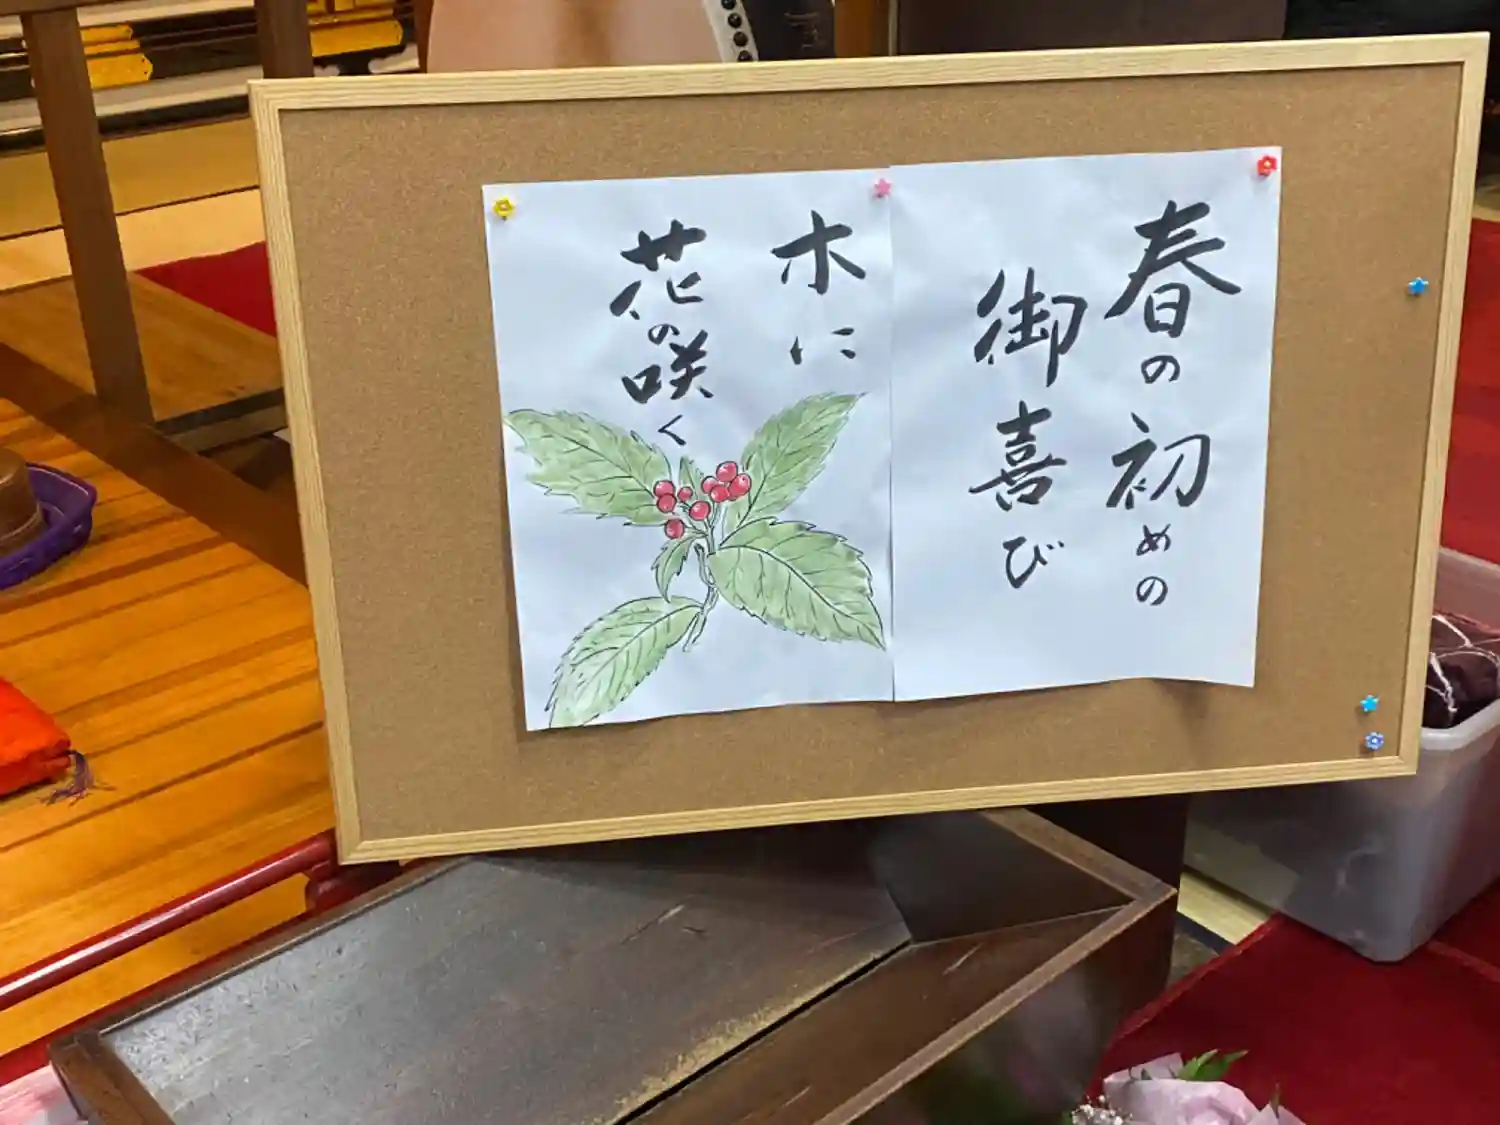 春の初めの
御喜び
木に
花の咲く